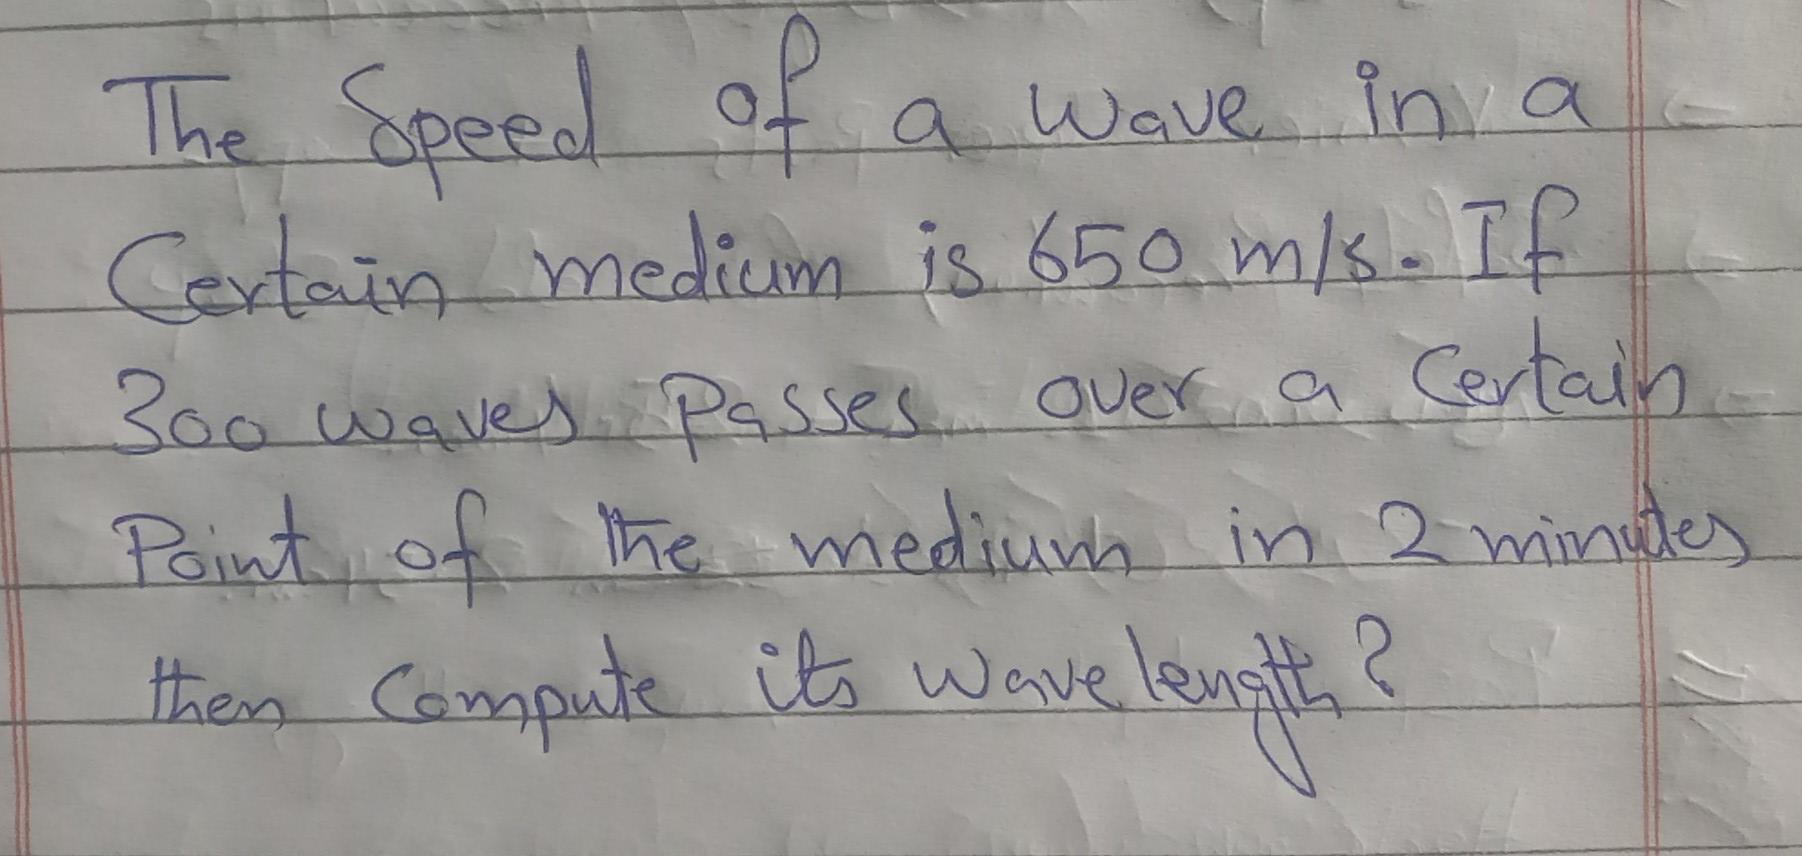 The Speed of a wave in a
Certain medium is 650 m/s. If
300 waves Passes over a Certain
Point of the medium in 2 minutes
then Compute its wavelength?